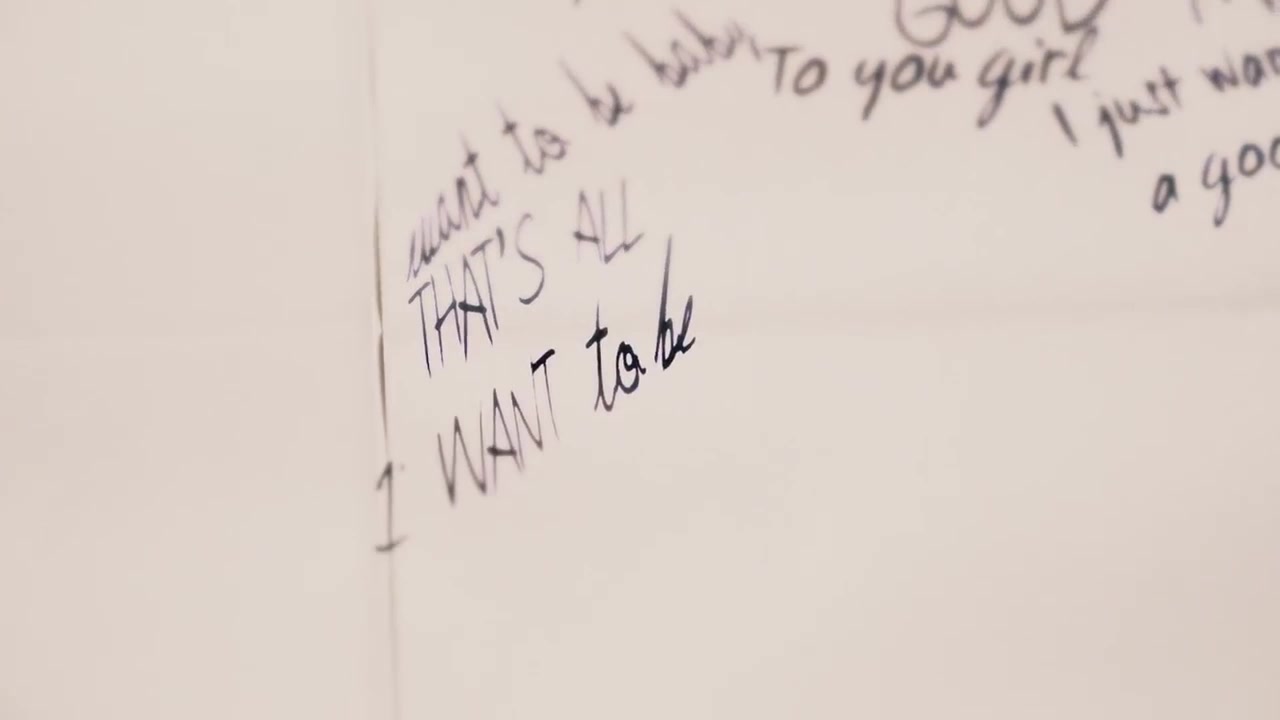 GOOD
want to be baby
To you girl
THAT'S ALL
I just
a
I WANT to be